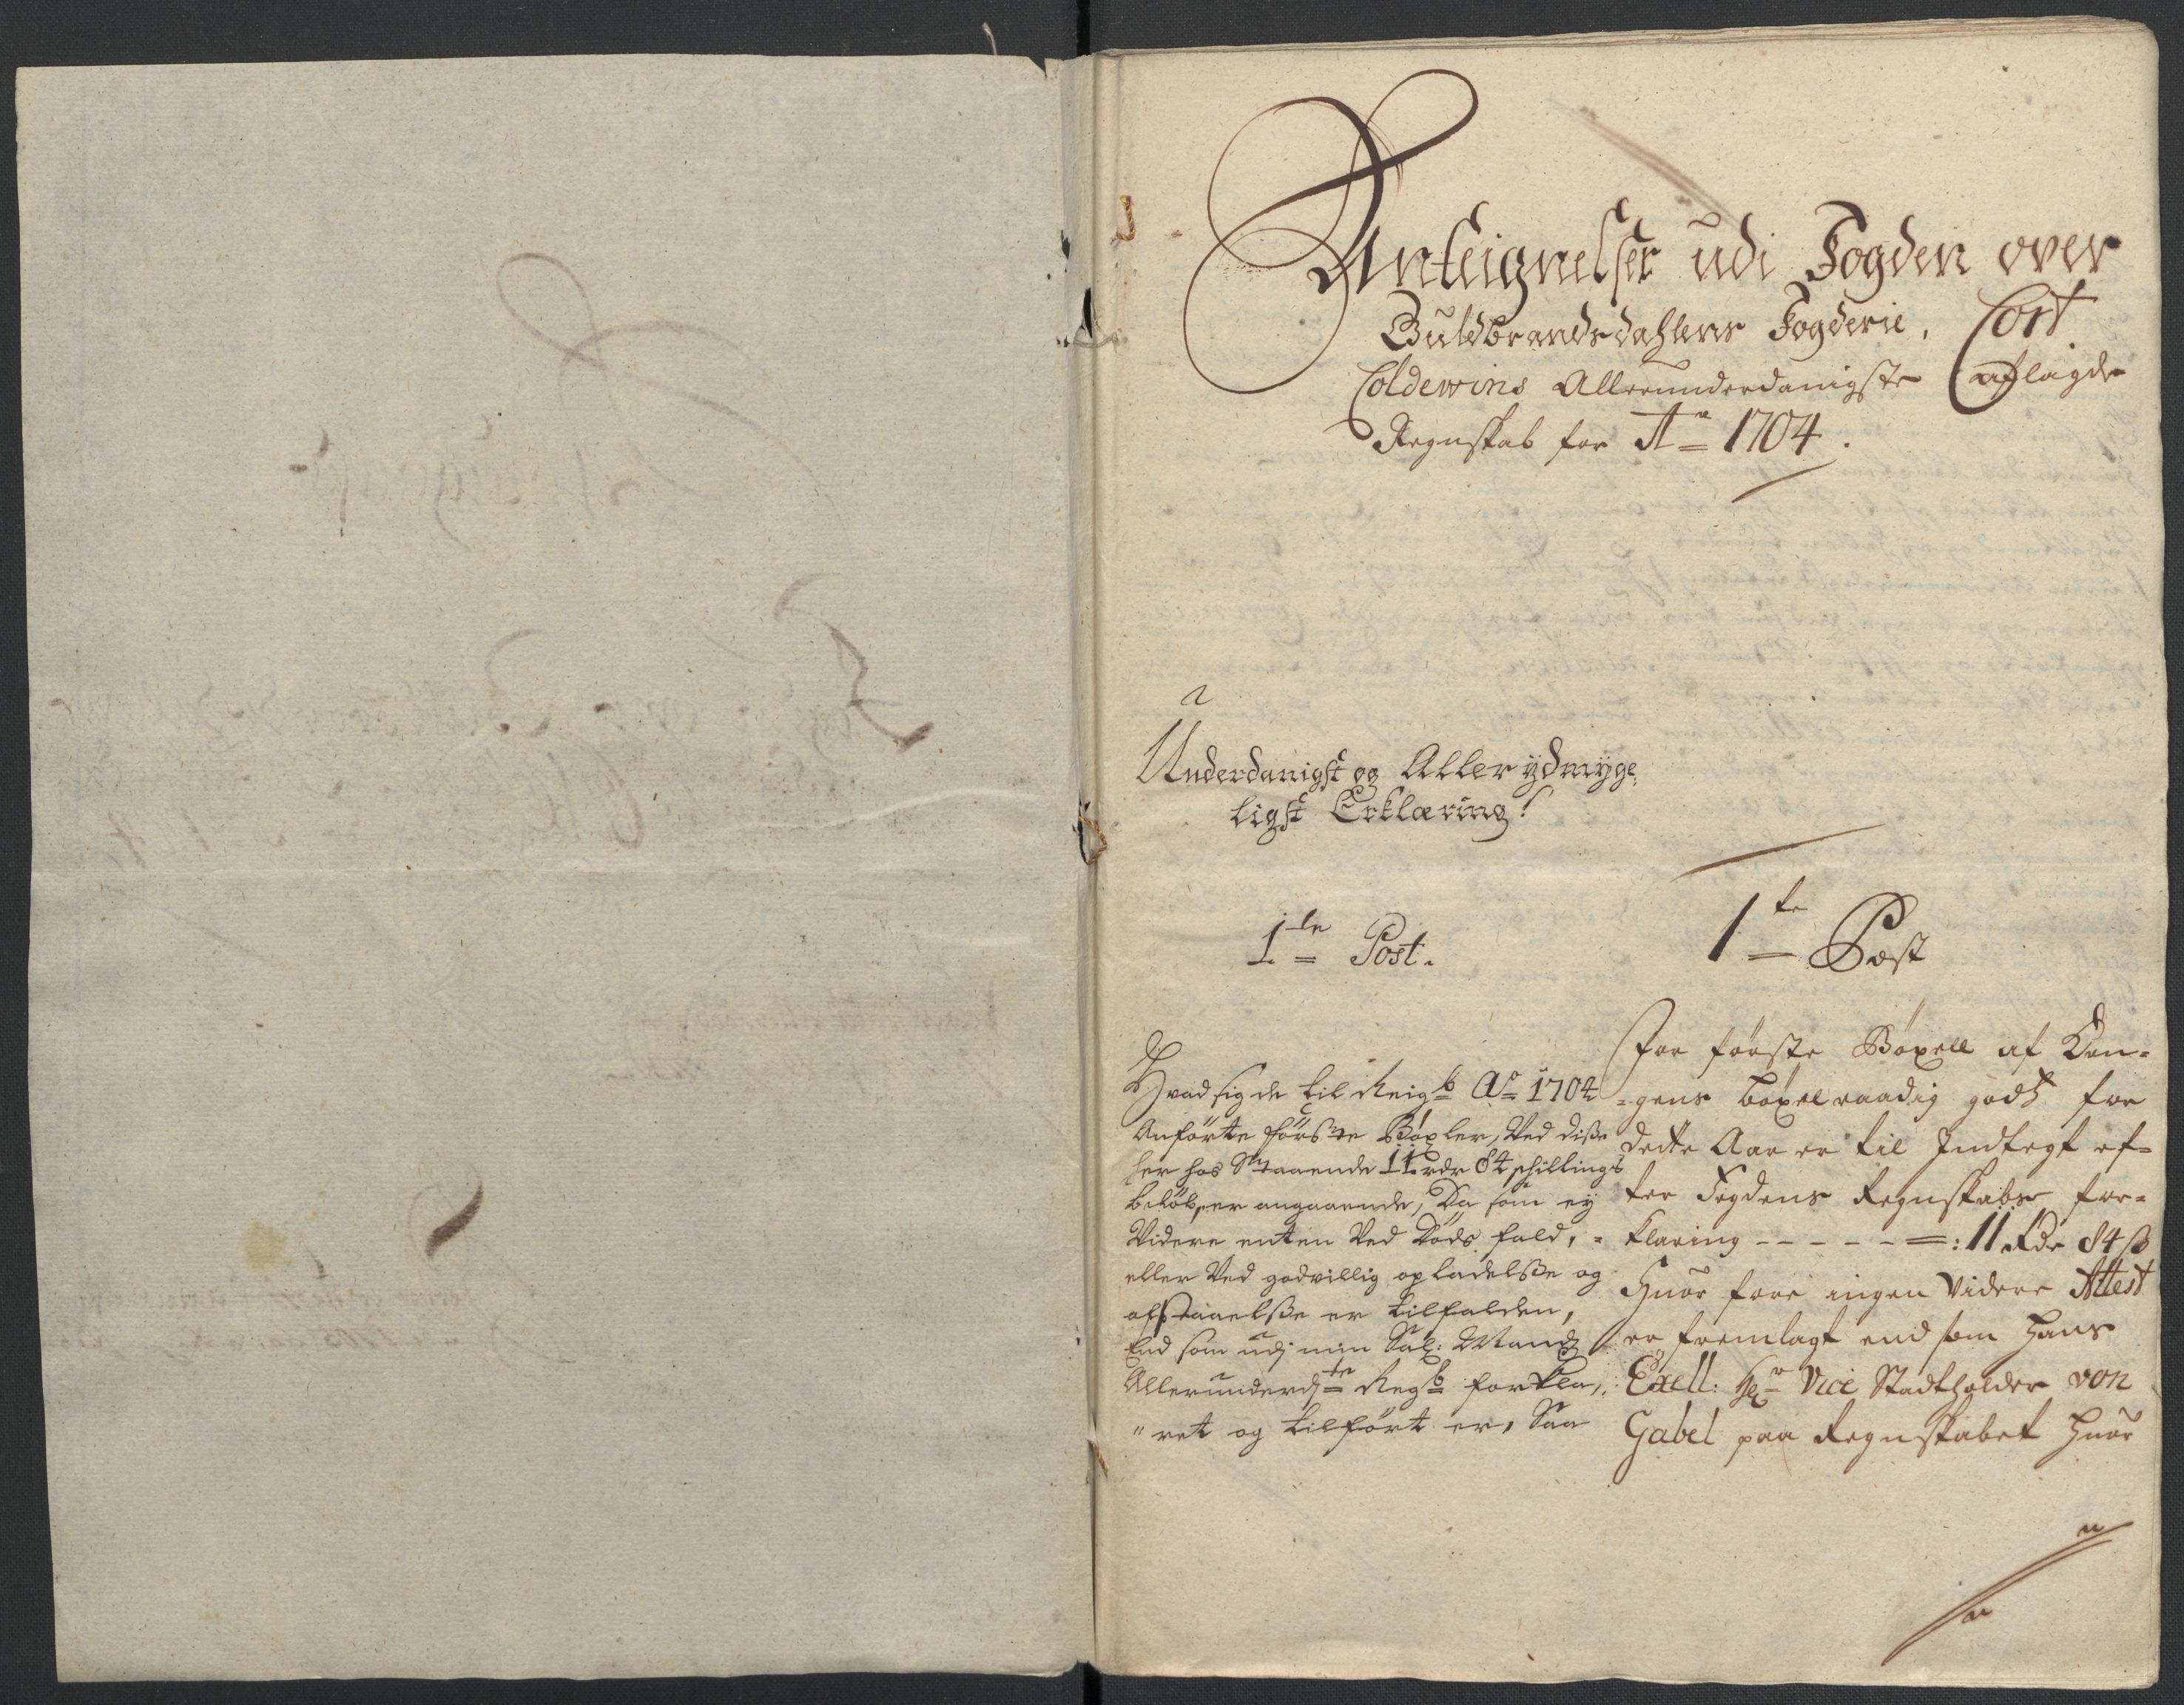 Anteignelser udi Fogden over
Guldbrandsdahlens Fogderie, Cort
Coldewins Allerunderdanigste aflagde
Regnskab for Ao 1704.
Underdanigst og Aller ydmyge,
ligst Erklæring!
1te Post.
Hvad sig de til Reigb Ao 1704
Anførte første Bøxler, Ved disse
her hos staaende 11 rdr 84 schillings
beløb, er angaaende, Da som ey
Videre enten Ved Døds fald,
eller Ved godvillig opladelsse og
afstaaelsse er tilfalden,
End som udj min Sal: Mands
Allerunderdte Regb forkla,,
"ret og tilført er, Saa
1te Post
For første Bøxell af Kon-
-gens bøxelraadig godtz for
dette Aar er til Indtegt ef-
ter Fogdens Regnskabs for-
klaring - - - - - =: 11 Rdr 84 ß
Huor fore ingen Videre Attest
er fremlagt end som Hans
Excell: Hr Vice Stadtholder von
Gabel paa Regnskabet huor